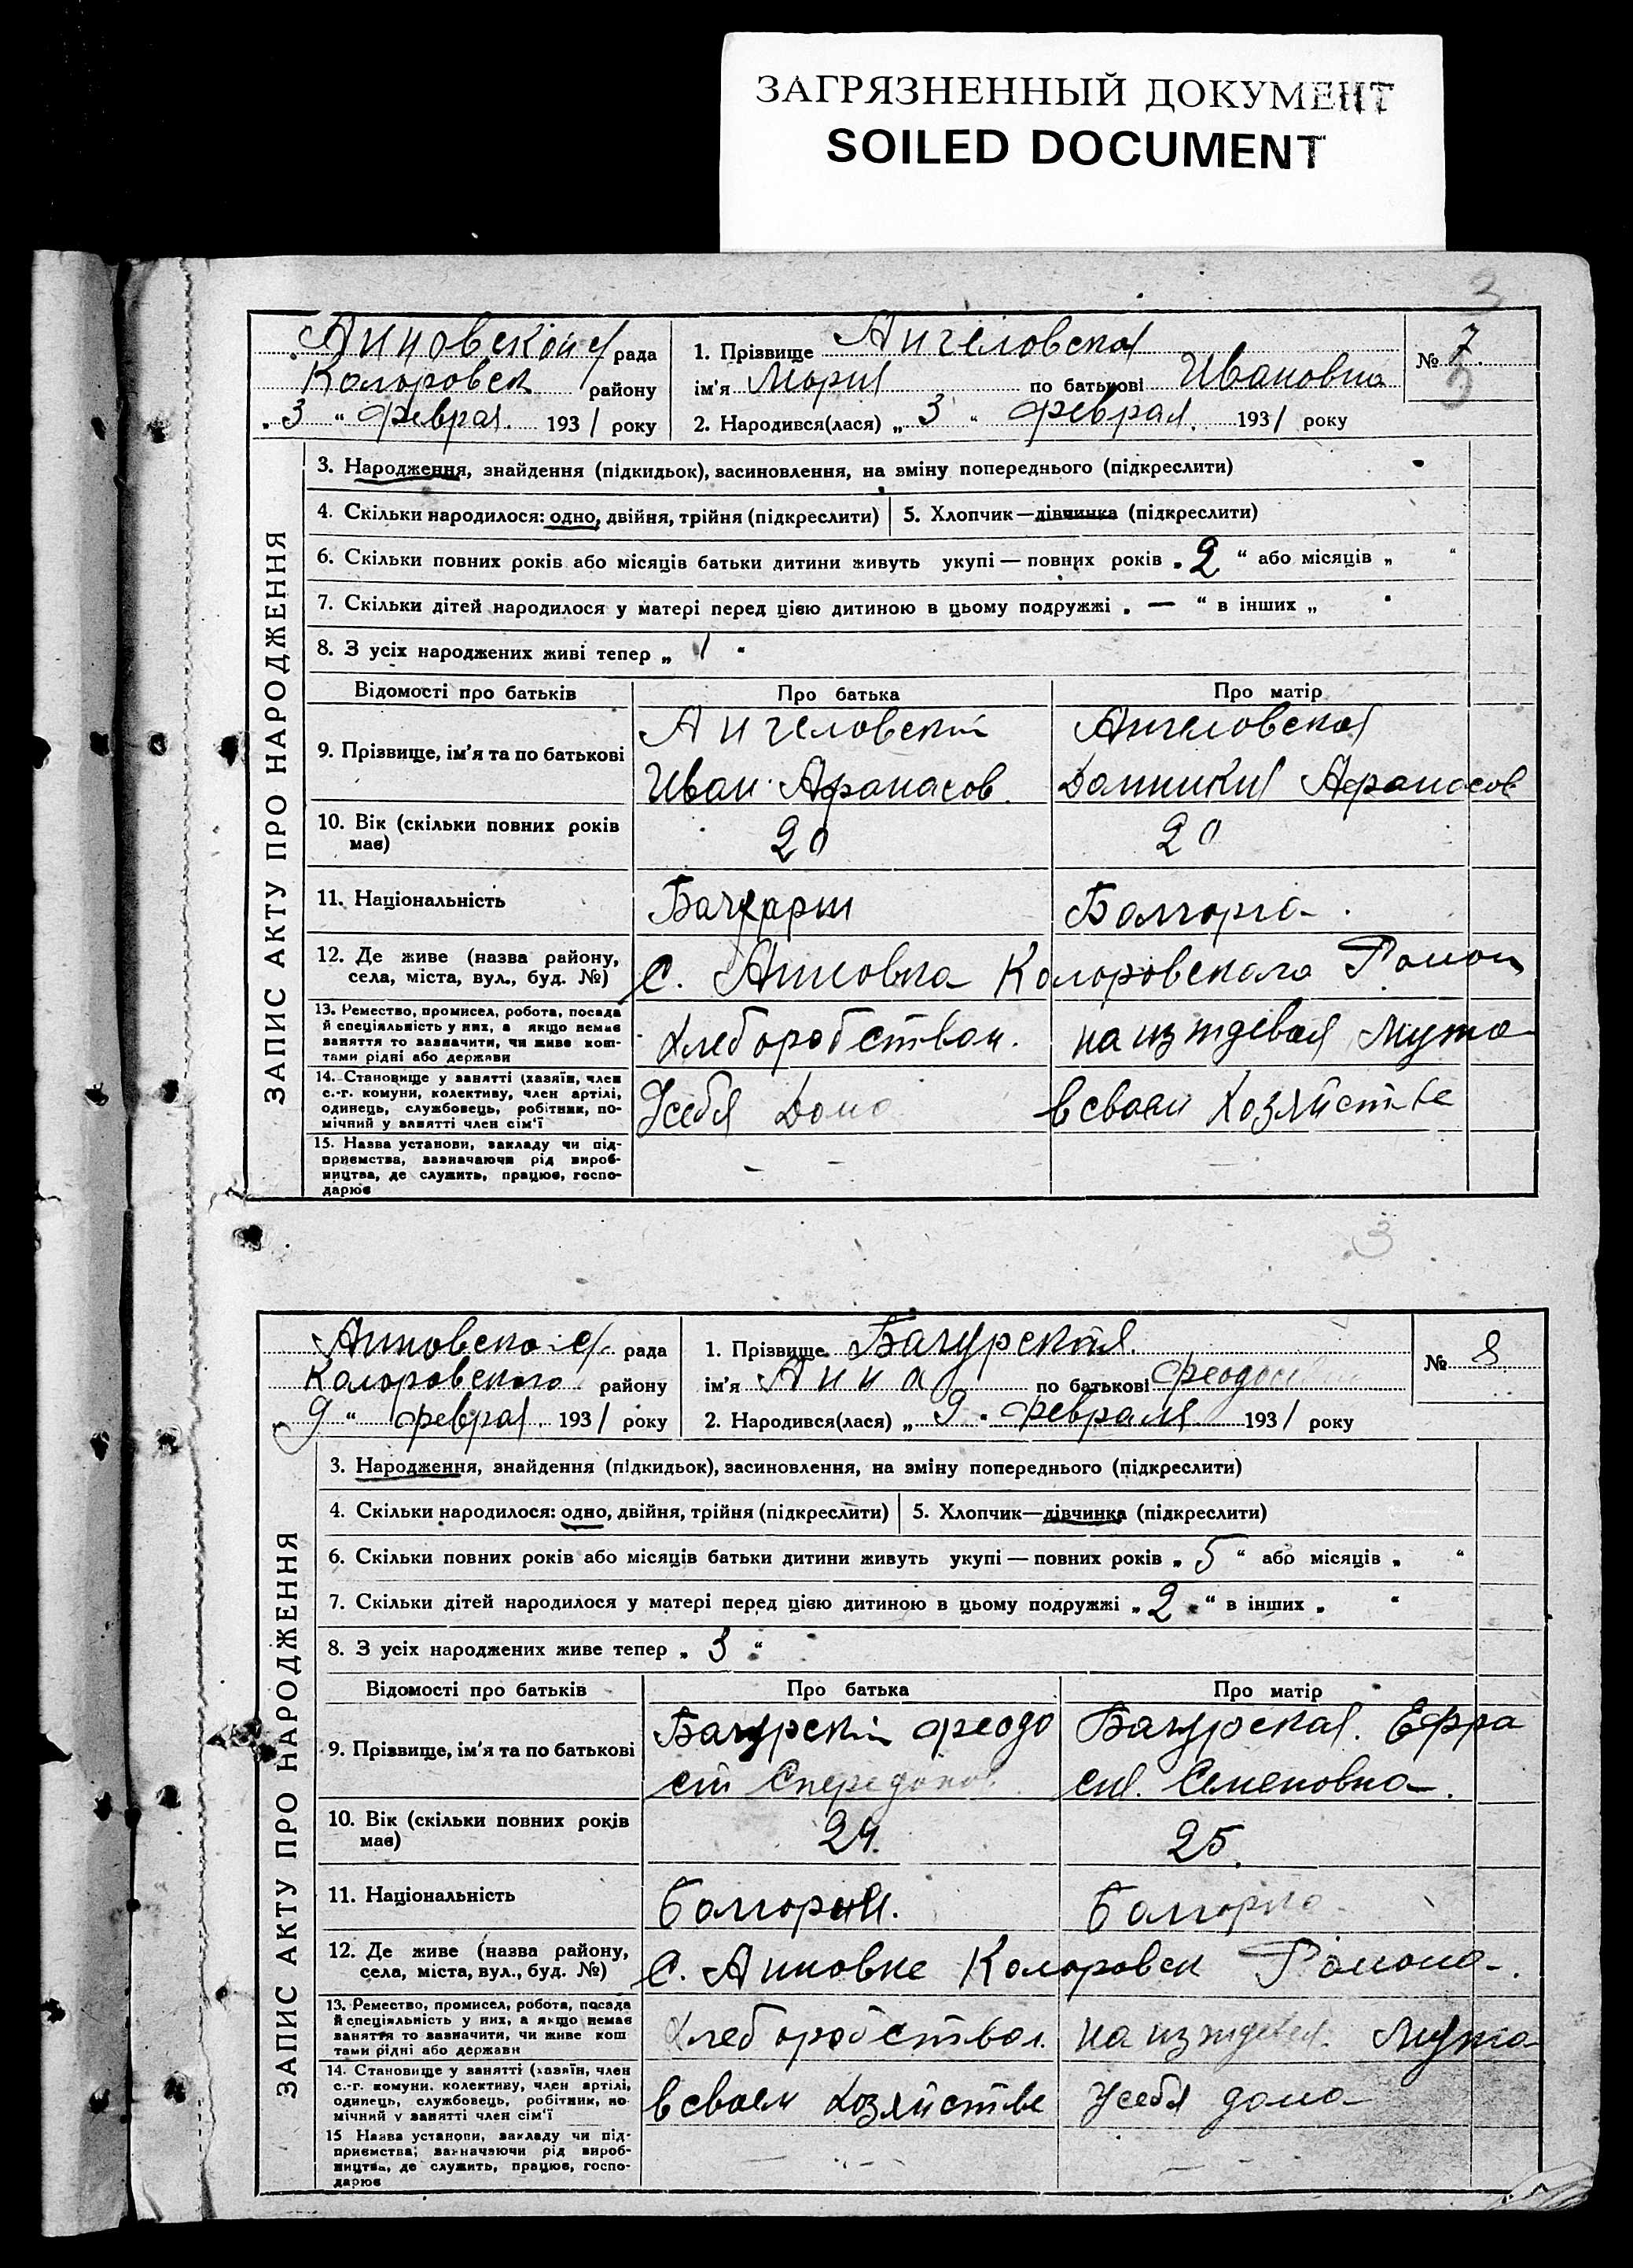 ЗАГРЯЗНЕННЫЙ ДОКУМЕНТ
SOILED DOCUMENT
3
Анновской с/рада
Коларовск району
„3“ Феврал. 1931 року
1. Прізвище Ангеловская
ім'я Мария по батькові Ивановна
2. Народився(лася) „3“ Феврал. 1931 року
№ 7.
ЗАПИС АКТУ ПРО НАРОДЖЕННЯ
3. Народження, знайдення (підкидьок), засиновлення, на зміну попереднього (підкреслити)
4. Скільки народилося: одно, двійня, трійня (підкреслити)
5. Хлопчик—дівчинка (підкреслити)
6. Скільки повних років або місяців батьки дитини живуть укупі — повних років „2“ або місяців „ “
7. Скільки дітей народилося у матері перед цією дитиною в цьому подружжі „—“ в інших „ “
8. З усіх народжених живі тепер „1“
Відомості про батьків Про батька Про матір
9. Прізвище, ім'я та по батькові
Ангеловский Ангеловская
Иван Афанасов. Афанасов
10. Вік (скільки повних років має) 20 20
11. Національність Болгарка.
12. Де живе (назва району, села, міста, вул., буд. №) С. Анновка Коларовскага Район
13. Ремество, промисел, робота, посада
й спеціяльність у них, а якщо немає
заняття то зазначити, чи живе кош-
тами рідні або держави
Хлеборобством. на иждевая Мужа
14. Становище у занятті (хазяїн, член
с.-г. комуни, колективу, член артілі,
одинець, службовець, робітник, по-
мічний у занятті член сім'ї
Усебя Дома в своем Хозяйстве
15. Назва установи, закладу чи під-
приємства, зазначаючи рід вироб-
ництва, де служить, працює, госпо-
дарює
— — —
3
Анновско с/. рада
Коларовского району
9 “ феврал. 1931 року
1. Прізвище Бачурская
ім'я Анна по батькові
2. Народився(лася) „9“ февраля 1931 року
№ 8
ЗАПИС АКТУ ПРО НАРОДЖЕННЯ
3. Народження, знайдення (підкидьок), засиновлення, на зміну попереднього (підкреслити)
4. Скільки народилося: одно, двійня, трійня (підкреслити)
5. Хлопчик—дівчинка (підкреслити)
6. Скільки повних років або місяців батьки дитини живуть укупі — повних років „5“ або місяців „ “
7. Скільки дітей народилося у матері перед цією дитиною в цьому подружжі „2“ в інших „ “
8. З усіх народжених живе тепер „3“
Відомості про батьків Про батька Про матір
9. Прізвище, ім'я та по батькові
Бачурский Феодо Бачурская. Ефра
сий сия. Семеновна.
10. Вік (скільки повних років має) 24. 25.
11. Національність Болгарин. Болгарка
12. Де живе (назва району, села, міста, вул., буд. №) С. Анновке Коларовск Района.
13. Ремество, промисел, робота, посада
й спеціяльність у них, а якщо немає
заняття то зазначити, чи живе кош
тами рідні або держави
Хлеборобством. на иждевая. Мужа
14. Становище у занятті (хазяїн, член
с.-г. комуни, колективу, член артілі,
одинець, службовець, робітник, по
мічний у занятті член сім'ї
в своем Хозяйстве Усебя дома
15 Назва установи, закладу чи під-
приємства, зазначаючи рід вироб-
ництва, де служить, працює, госпо-
дарює